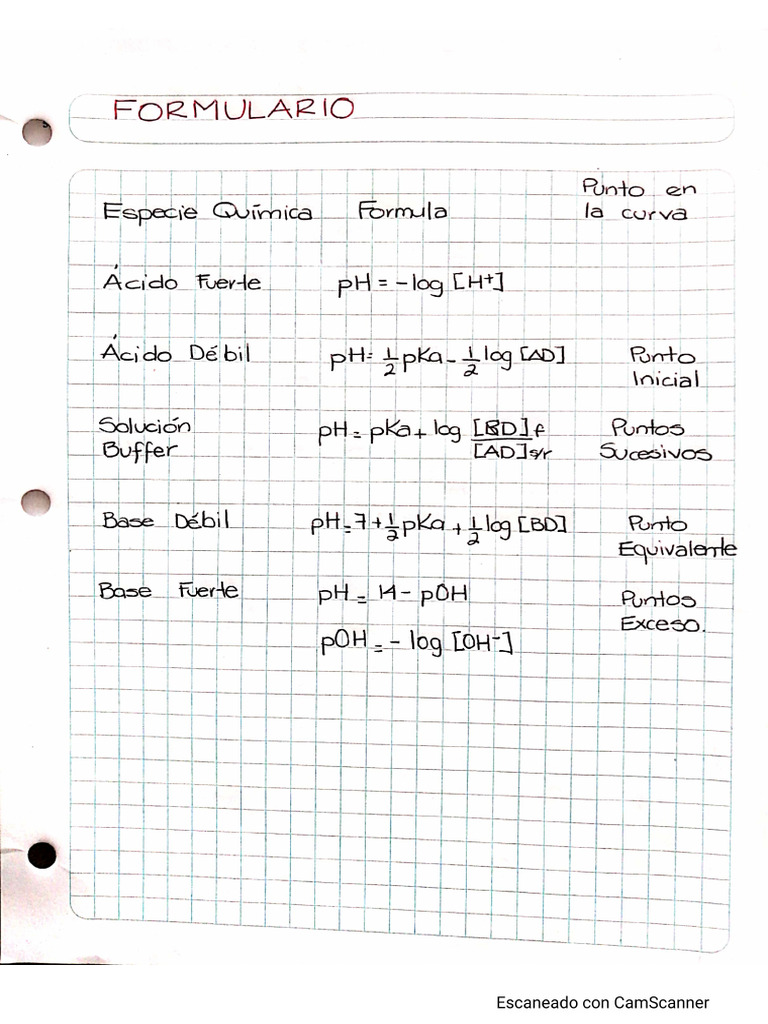 FORMULARIO
Especie Química Formula Punto en la curva
Ácido Fuerte pH = -log [H⁺]
Ácido Débil pH = 1/2 pKa - 1/2 log [AD] Punto Inicial
Solución Buffer pH = pKa + log [BD]f / [AD]s/r Puntos Sucesivos
Base Débil pH = 7 + 1/2 pKa + 1/2 log [BD] Punto Equivalente
Base Fuerte pH = 14 - pOH Puntos Exceso.
pOH = - log [OH⁻]
Escaneado con CamScanner